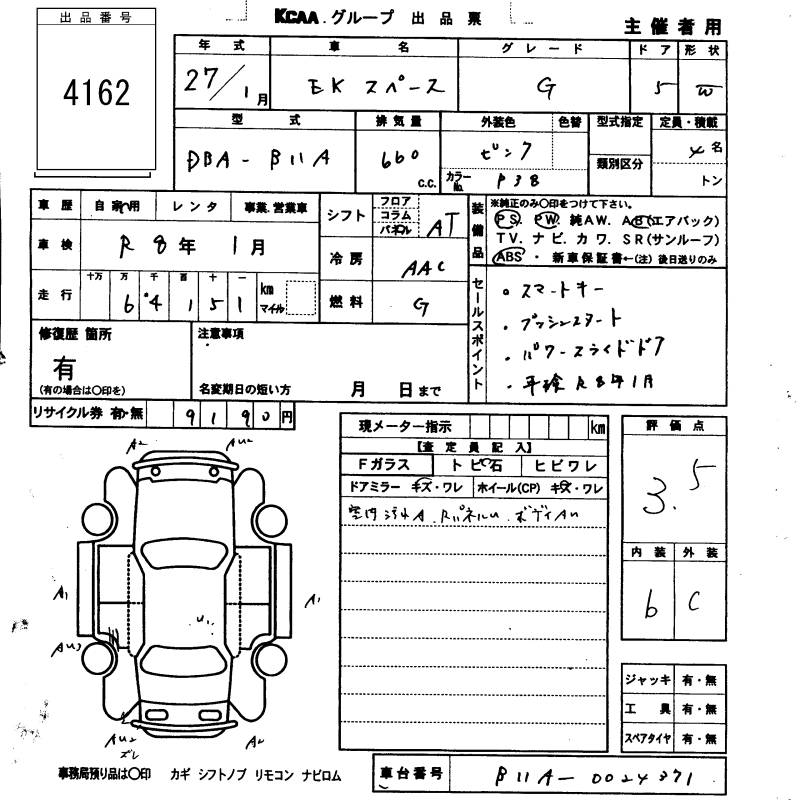 出品番号
4162
KCAA.グループ 出品票
主催者用
年式 車名 グレード ドア 形状
27/1月 EKスペース G 5 W
型式 排気量 外装色 色替 型式指定 定員・積載
DBA-B11A 660 c.c. ピンク カラーNo. P38 類別区分 4名 トン
車歴 自家用 レンタ 事業.営業車
車検 R8年1月
走行 十万 万 千 百 十 一 km マイル
64151
シフト フロア コラム パネル AT
冷房 AAC
燃料 G
装備品 ※純正のみ〇印をつけて下さい。
PS. PW. 純AW. AB(エアバック)
TV. ナビ. カワ. SR(サンルーフ)
ABS ・ 新車保証書←(注)後日送りのみ
セールスポイント
・スマートキー
・プッシュスタート
・パワースライドドア
・車検R8年1月
修復歴 箇所
有
(有の場合は〇印を)
注意事項
名変期日の短い方 月 日まで
リサイクル券 有・無 9190円
現メーター指示 km
【査定員記入】
Fガラス トビ石 ヒビワレ
ドアミラー キズ・ワレ ホイール(CP) キズ・ワレ
室内汚れA. RパネルU. ボディAU
評価点
3.5
内装 外装
b C
A2 AU2
A1 U1 A1
AU3
AU2 ズレ A2
ジャッキ 有・無
工具 有・無
スペアタイヤ 有・無
事務局預り品は〇印 カギ シフトノブ リモコン ナビロム
車台番号 B11A-0024371